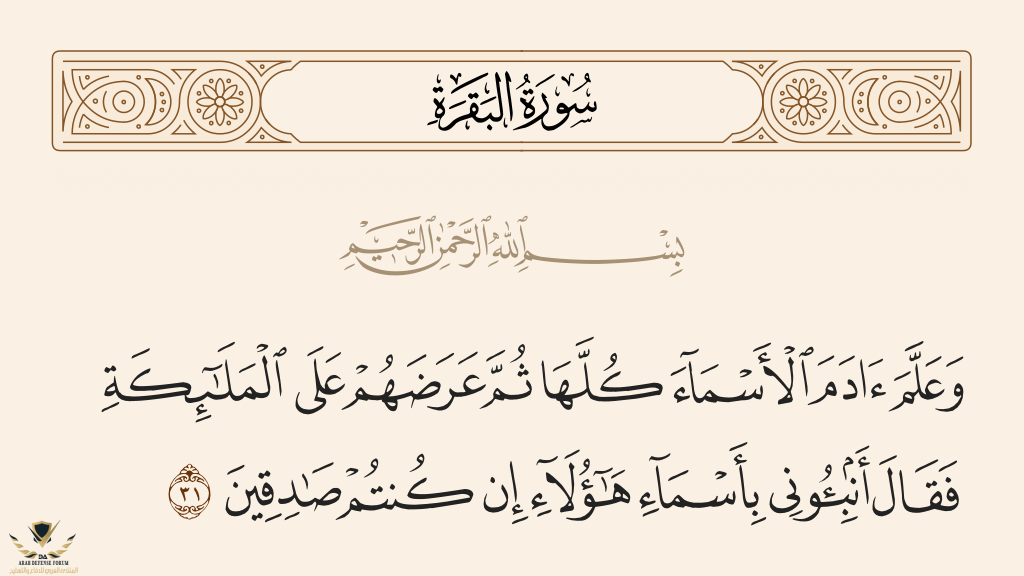 سُورَةُ البَقَرَةِ
بِسْمِ ٱللَّهِ ٱلرَّحْمَٰنِ ٱلرَّحِيمِ
وَعَلَّمَ ءَادَمَ ٱلْأَسْمَآءَ كُلَّهَا ثُمَّ عَرَضَهُمْ عَلَى ٱلْمَلَٰٓئِكَةِ
فَقَالَ أَنۢبِـُٔونِى بِأَسْمَآءِ هَٰٓؤُلَآءِ إِن كُنتُمْ صَٰدِقِينَ ٣١
DA
ARAB DEFENSE FORUM
المنتدى العربي للدفاع والتسليح